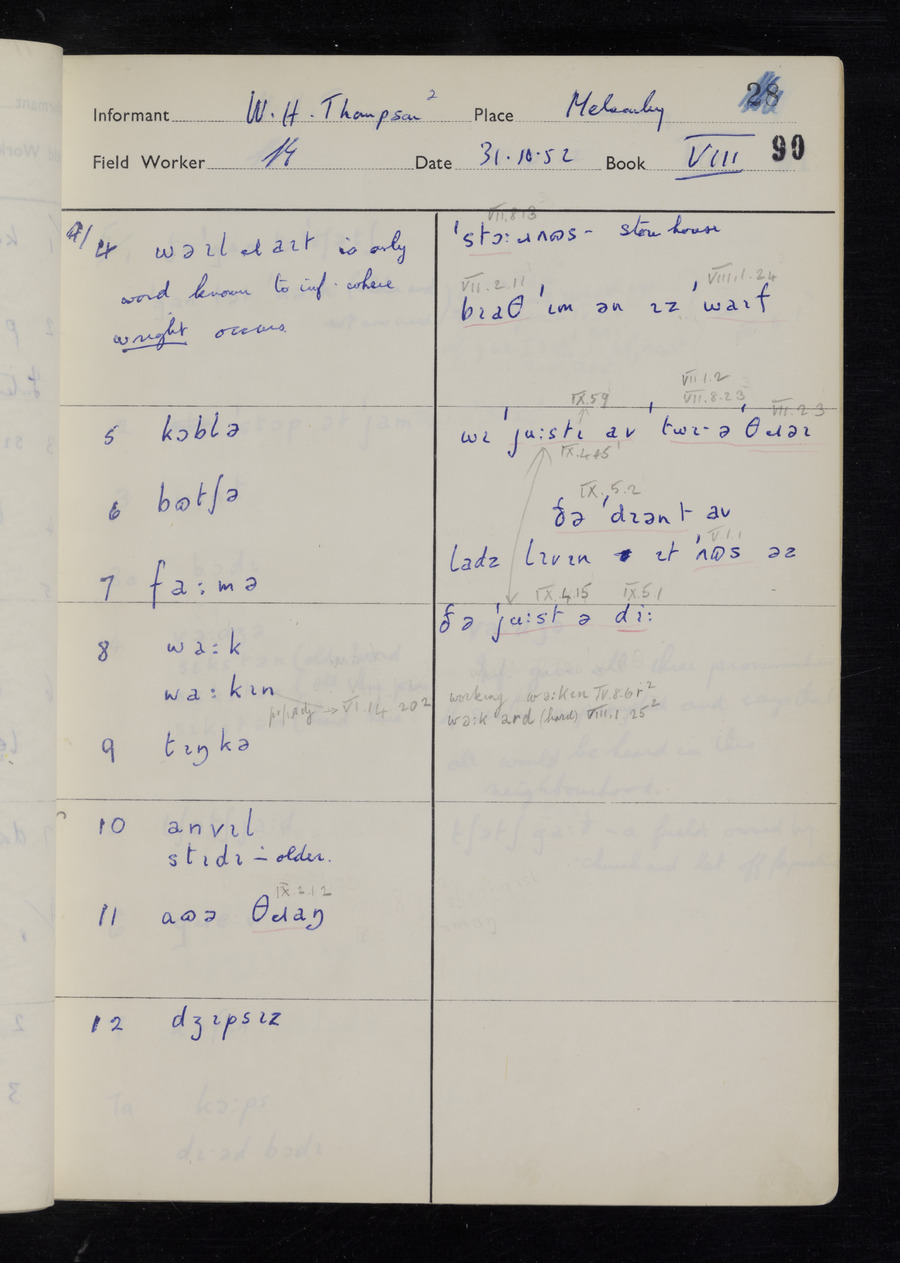 Informant W. H. Thompson² Place Melsonby 28
Field Worker Date 31.10.52 Book VIII 90
4/ 4 wəɪl ɹaɪt is only
word known to inf. where
wright occurs
5 kɔblə
6 bʊtʃə
7 fa:mə
8 wa:k
wa:kɪn
→ VI.14 20²
9 tɪŋkə
10 anvɪl
stɪdɪ – older.
IX.2.12
11 aʊə θɹaŋ
12 dʒɪpsɪz
VII.8.13
ˈstɔ:ɹʊəs – store house
VII.2.11 VIII.1.24
bɪaθ ˈɪm ən ɪz ˈwaɪf
VII.1.2
IX.5.9 VII.8.23 VII.2.3
wɪ ˈju:stɪ av ˈtwɪ-ə ˈθɹəɪ
IX.5.2
ðə ˈdɪənt av
V.1.1
ladz lɪvɪn ɪt ˈʊs əz
IX.4.15 IX.5.1
ðə ˈju:st ə di:
working wa:kɪn IV.8.6r²
wa:k ard (hard) VIII.1 25²